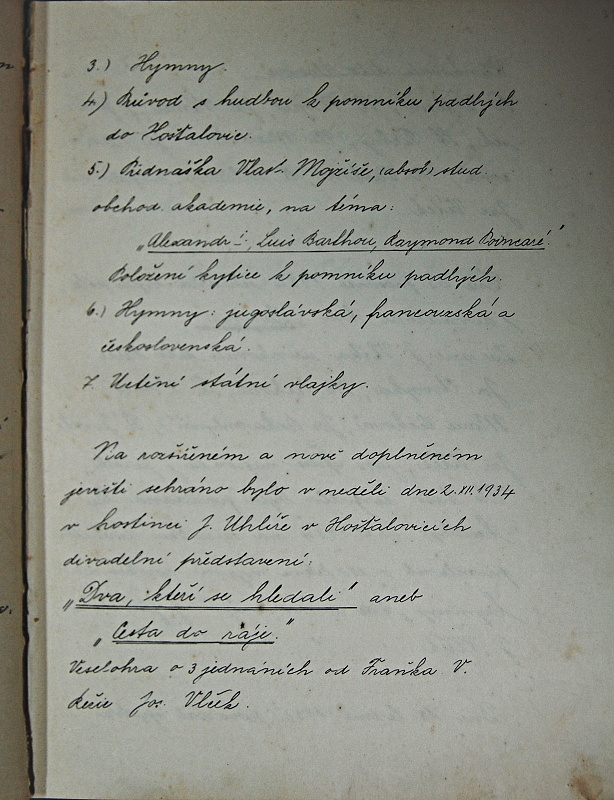 3.) Hymny.
4.) Průvod s hudbou k pomníku padlých
do Hošťalovic.
5.) Přednáška Vlast. Mojžíše, (absol.) stud.
obchod. akademie, na téma:
„Alexandr I., Luis Barthou, Raymond Poincaré."
Položení kytice k pomníku padlých.
6.) Hymny: jugoslávská, francouzská a
československá.
7. Uctění státní vlajky.
Na rozšířeném a nově doplněném
jevišti sehráno bylo v neděli dne 2.XII.1934
v hostinci J. Uhlíře v Hošťalovicích
divadelní představení:
„Dva, kteří se hledali" aneb
„Cesta do ráje."
Veselohra o 3 jednáních od Fraňka V.
Režie Jos. Vlček.